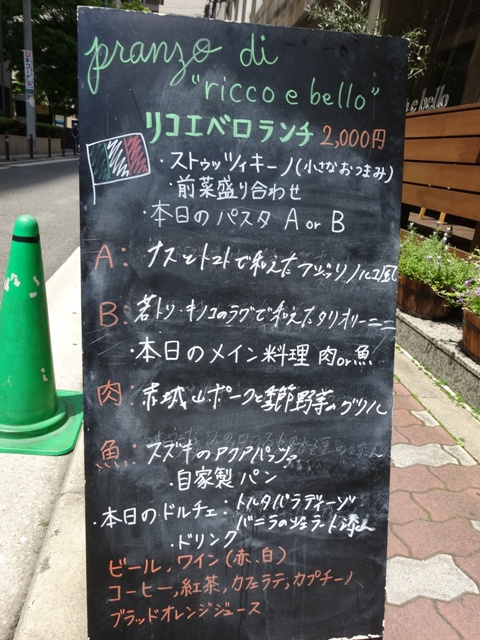 pranzo di
"ricco e bello"
リコエベロランチ 2,000円
・ストゥッツィキーノ(小さなおつまみ)
・前菜盛り合わせ
・本日のパスタ A or B
A: ナスとトマトで和えた フジッリ ノルマ風
B: 若トリ・キノコのラグで和えたタリオリーニ
・本日のメイン料理 肉or魚
肉: 赤城山ポークと季節野菜のグリル
魚: スズキのアクアパッツァ
・自家製 パン
・本日のドルチェ: トルタパラディーゾ
バニラのジェラート添え
・ドリンク
ビール, ワイン(赤、白)
コーヒー, 紅茶, カフェラテ, カプチーノ,
ブラッドオレンジジュース
e bello